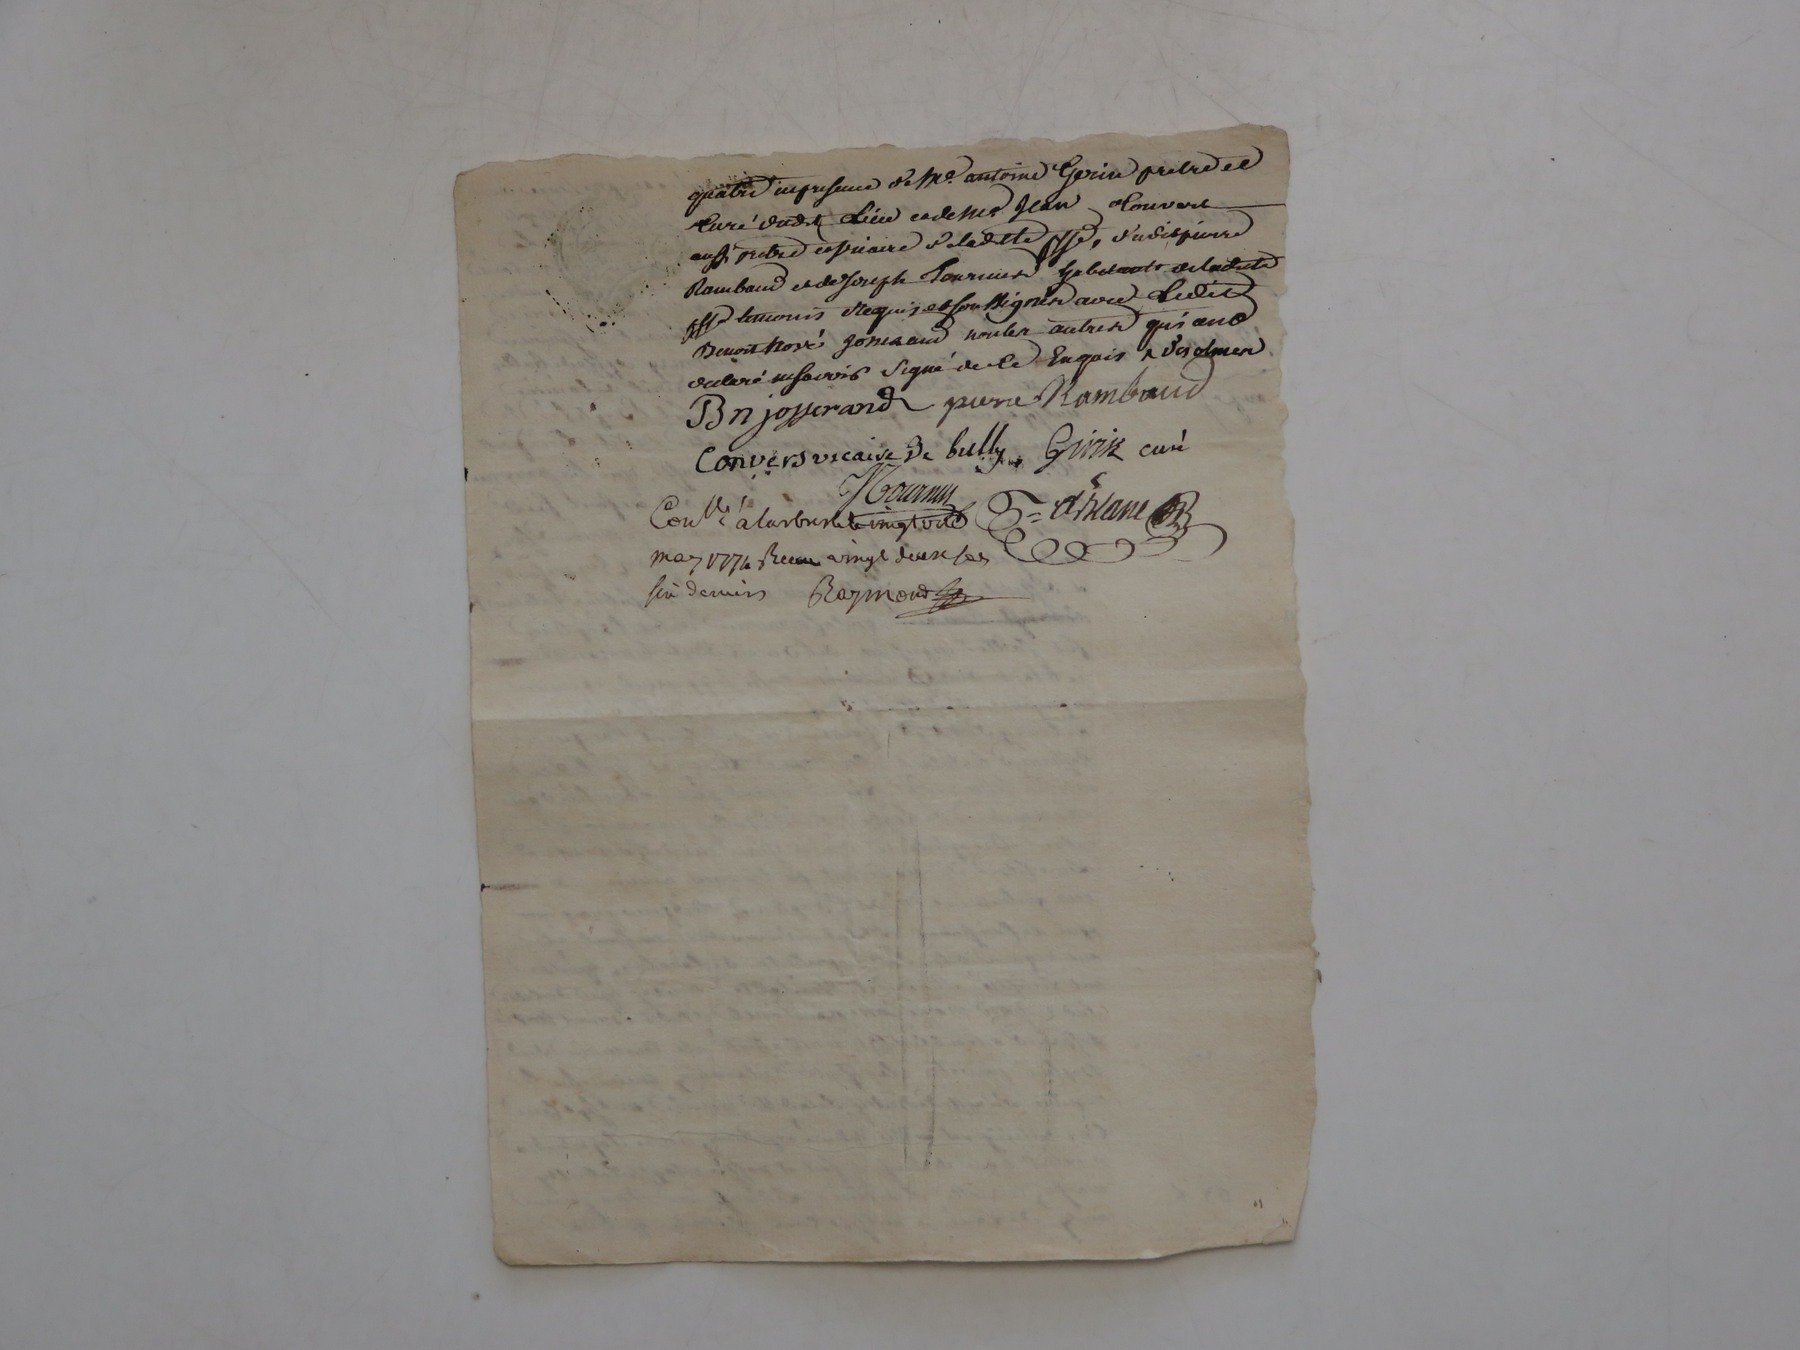 quatre en presence de Me. antoine Gerin pretre et
Curé dudit Lieu et de Mre Jean Convers
aussi pretre et vicaire de laditte psse, dudit pierre
Rambaud et de Joseph Fournier habitants de ladite
psse temoins Requis et soussignés avec Ledit
Benoit josserand non les autres qui ont
declaré ne savoir signé de ce Enquis
Bn josserand pierre Rambaud
Convers vicaire de bully Gerin curé
J fournier
Conllé à larbresle le vingt
may 1774 Receu vingt deux sols
six deniers Raymond